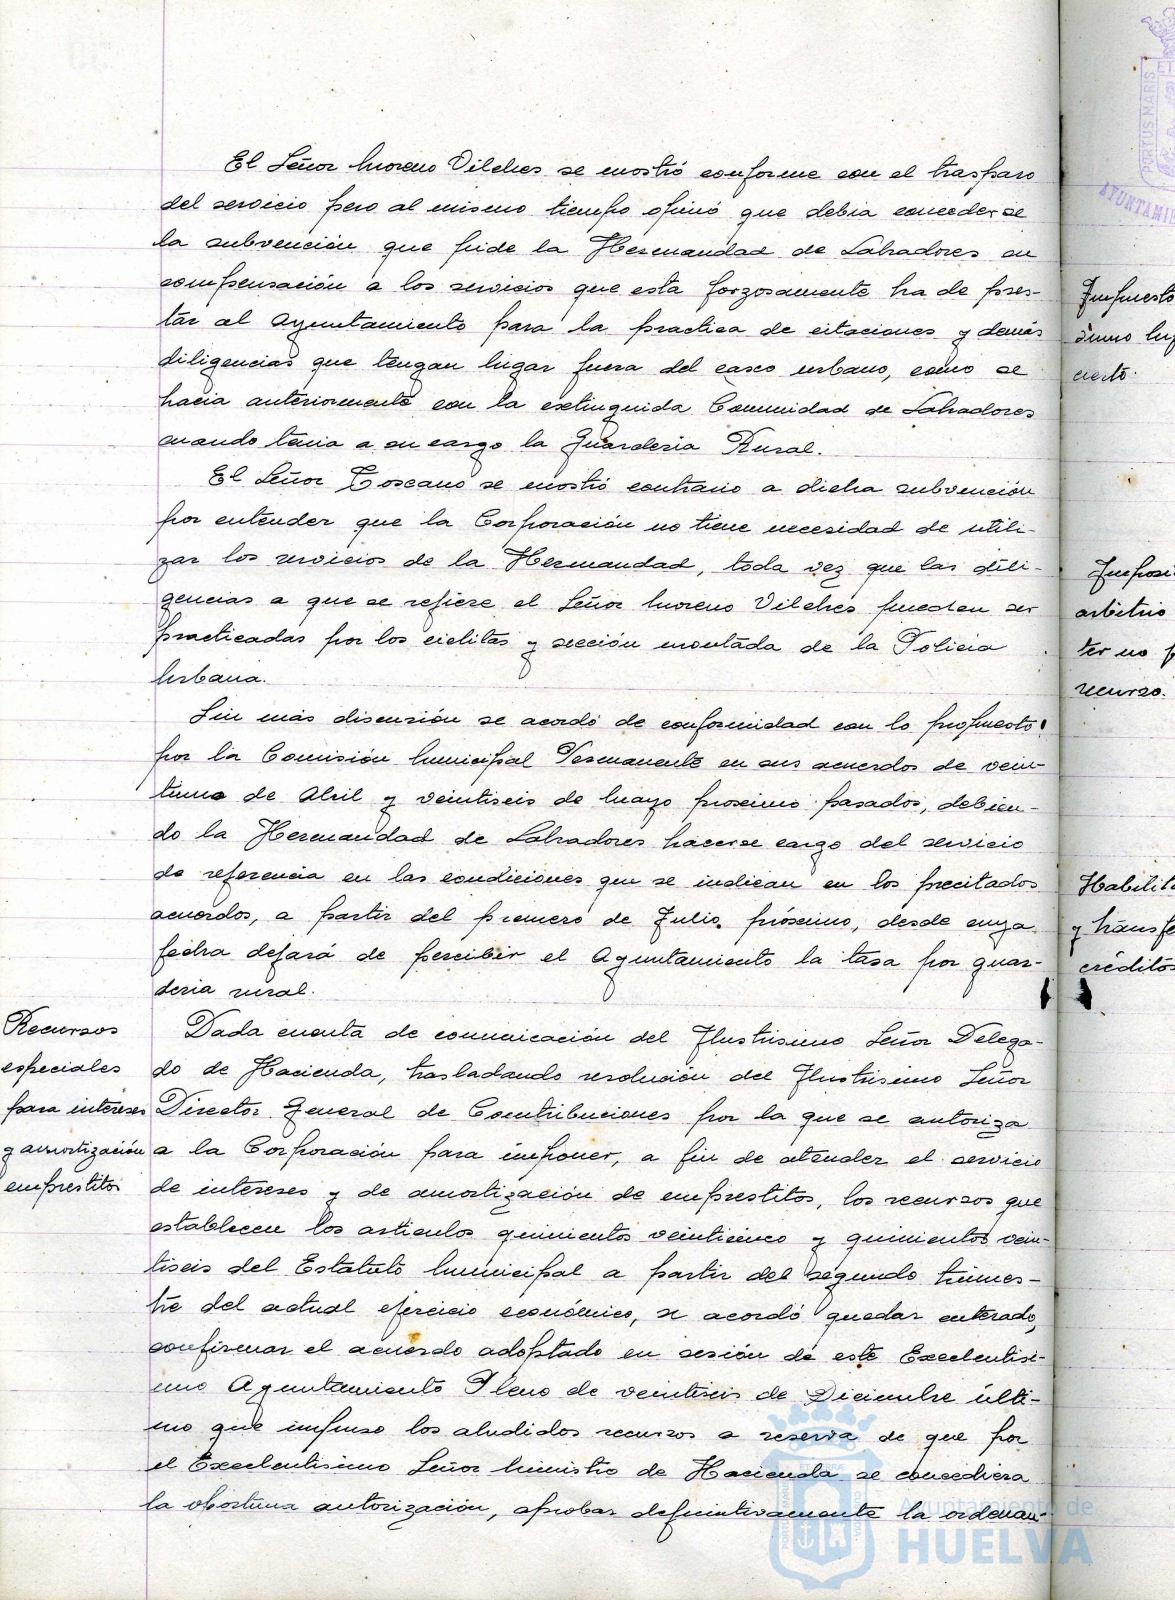 El Señor Moreno Vilches se mostró conforme con el traspaso
del servicio pero al mismo tiempo opinó que debia concederse
la subvención que pide la Hermandad de Labradores en
compensación a los servicios que esta forzosamente ha de pres-
tar al Ayuntamiento para la practica de citaciones y demás
diligencias que tengan lugar fuera del casco urbano, como se
hacia anteriormente con la extinguida Comunidad de Labradores
cuando tenia a su cargo la Guarderia Rural.
El Señor Toscano se mostró contrario a dicha subvención
por entender que la Corporación no tiene necesidad de utili-
zar los servicios de la Hermandad, toda vez que las dili-
gencias a que se refiere el Señor Moreno Vilches pueden ser
practicadas por los ciclitas y sección montada de la Policia
Urbana.
Sin más discusión se acordó de conformidad con lo propuesto
por la Comisión Municipal Permanente en sus acuerdos de vein-
tiuno de Abril y veintiseis de Mayo proximo pasados, debien-
do la Hermandad de Labradores hacerse cargo del servicio
de referencia en las condiciones que se indican en los precitados
acuerdos, a partir del primero de Julio próximo, desde cuya
fecha dejará de percibir el Ayuntamiento la tasa por guar-
deria rural.
Recursos
especiales
para intereses
y amortización
emprestitos
Dada cuenta de comunicación del Ilustrisimo Señor Delega-
do de Hacienda, trasladando resolución del Ilustrisimo Señor
Director General de Contribuciones por la que se autoriza
a la Corporación para imponer, a fin de atender el servicio
de intereses y de amortización de emprestitos, los recursos que
establecen los articulos quinientos veinticinco y quinientos vein-
tiseis del Estatuto Municipal a partir del segundo trimes-
tre del actual ejercicio económico, se acordó quedar enterado,
confirmar el acuerdo adoptado en sesión de este Excelentisi-
mo Ayuntamiento Pleno de veintiseis de Diciembre últi-
mo que impuso los aludidos recursos a reserva de que por
el Excelentisimo Señor Ministro de Hacienda se concediera
la oportuna autorización, aprobar definitivamente la ordenan-
Impuesto
cierto.
arbitrio
ter no
recurso.
y transfe
créditos
PORTUS MARIS
Ayuntamiento de
HUELVA